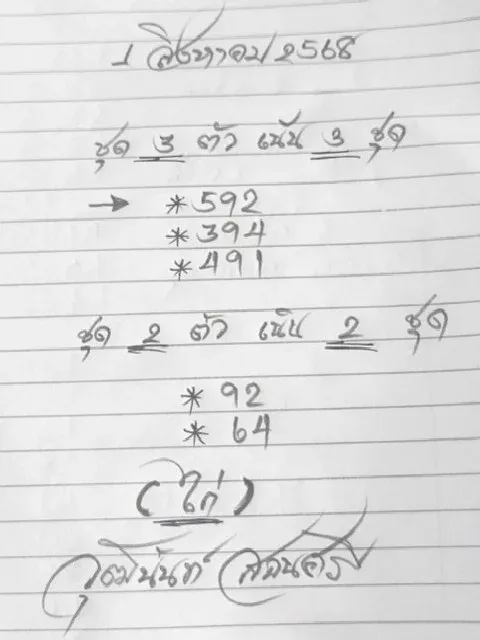 1 สิงหาคม 2568
ชุด 3 ตัว เน้น 3 ชุด
→ *592
*394
*491
ชุด 2 ตัว เน้น 2 ชุด
* 92
* 64
(ไก่)
วุฒินันท์